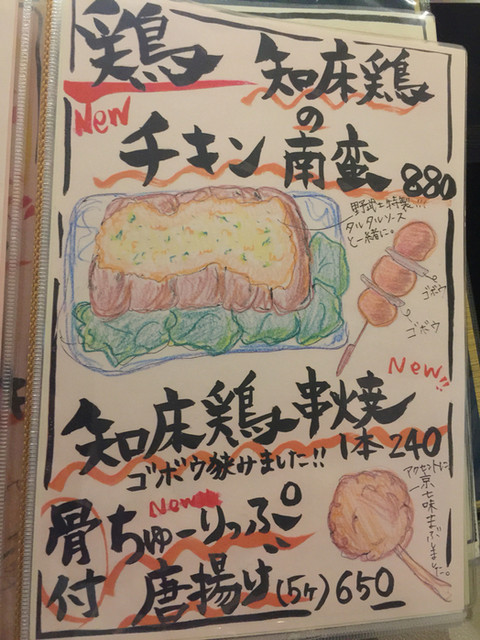 鶏
New
知床鶏
の
チキン南蛮 880
野武士特製!!!
タルタルソース
と一緒に。
ゴボウ
ゴボウ
New!!
知床鶏串焼
1本 240
ゴボウ狭みました!!
New
骨付
ちゅーりっぷ
唐揚げ(5ヶ) 650
アクセントに
京七味まぶしました。